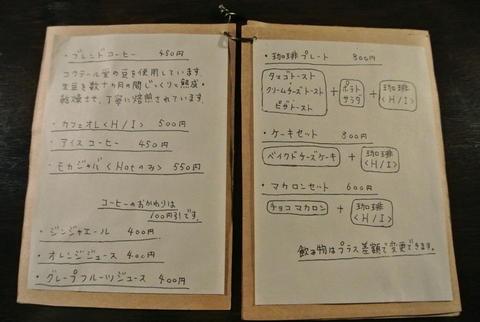 ・ブレンドコーヒー 450円
コクテール堂の豆を使用しています。
生豆を数ヶ月の間じっくりと熟成・
乾燥させ、丁寧に焙煎されています。
・カフェオレ〈H/I〉 500円
・アイスコーヒー 450円
・モカジャバ〈Hotのみ〉 550円
コーヒーのおかわりは
100円引です。
・ジンジャエール 400円
・オレンジジュース 400円
・グレープフルーツジュース 400円
・珈琲プレート 800円
タマゴトースト
クリームチーズトースト
ピザトースト
+
ポテト
サラダ
+
珈琲
〈H/I〉
・ケーキセット 800円
ベイクドチーズケーキ + 珈琲
〈H/I〉
・マカロンセット 600円
チョコマカロン + 珈琲
〈H/I〉
飲み物はプラス差額で変更できます。